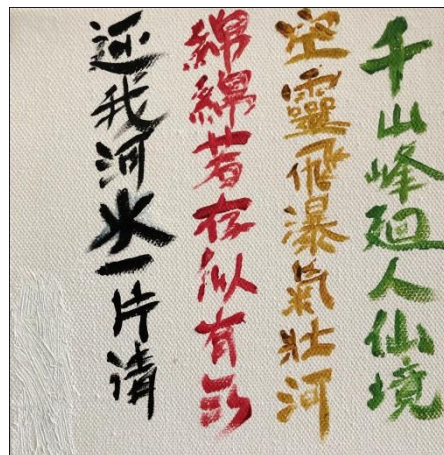 千山峰廻人仙境
空靈飛瀑氣壯河
綿綿若存似有形
還我河水一片清